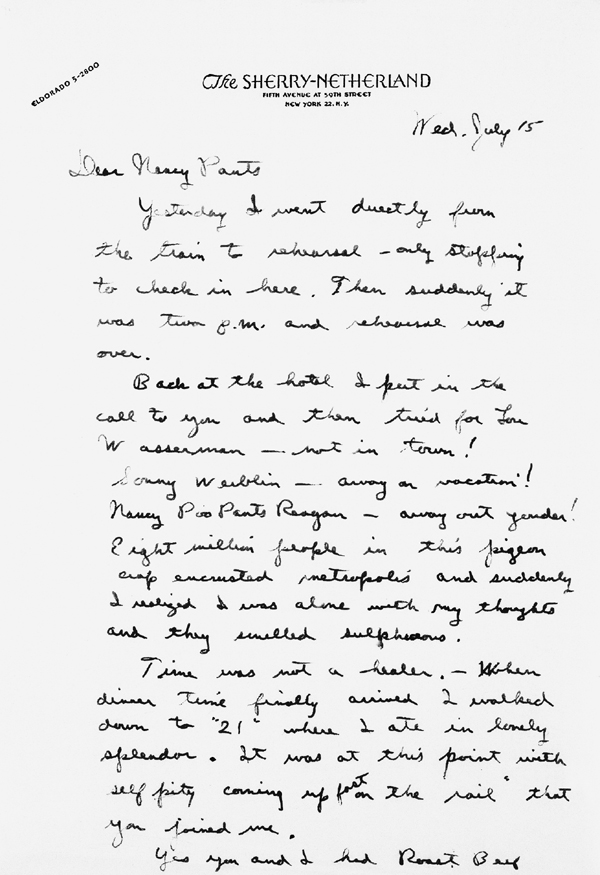 ELDORADO 5-2800
The SHERRY-NETHERLAND
FIFTH AVENUE AT 59TH STREET
NEW YORK 22. N.Y.
Wed. July 15
Dear Nancy Pants
Yesterday I went directly from
the train to rehearsal – only stopping
to check in here. Then suddenly it
was two p.m. and rehearsal was
over.
Back at the hotel I put in the
call to you and then tried for Lou
Wasserman – not in town!
Sonny Werblin – away on vacation!
Nancy Poo Pants Reagan – away out yonder!
Eight million people in this pigeon
crap encrusted metropolis and suddenly
I realized I was alone with my thoughts
and they smelled sulphurous.
Time was not a healer. – When
dinner time finally arrived I walked
down to "21" where I ate in lonely
splendor. It was at this point with
self pity coming up fast on the rail" that
you joined me.
Yes you and I had Roast Beef